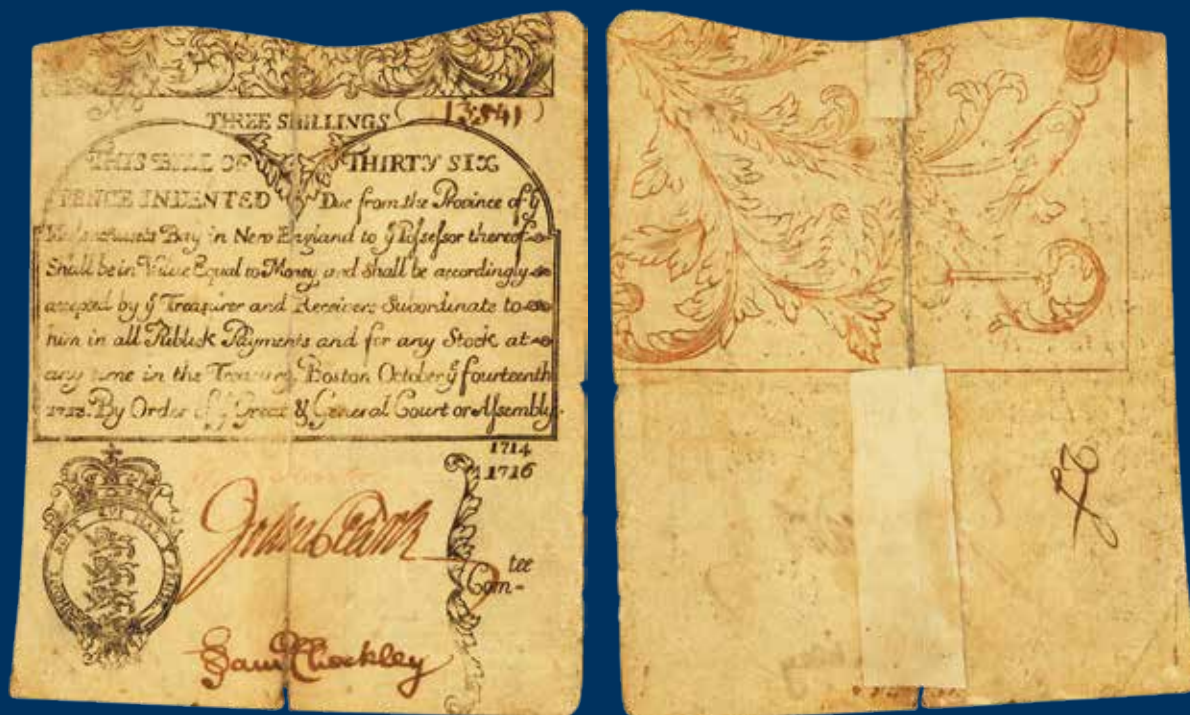 No (13541)
THREE SHILLINGS
THIS BILL OF THIRTY SIX
PENCE INDENTED Due from the Province of ẏ
Massachusets Bay in New England to ẏ Poſseſsor thereof
Shall be in Value Equal to Money and shall be accordingly
accepted by ẏ Treasurer and Receivers Subordinate to
him in all Publick Payments and for any Stock at
any time in the Treasury. Boston October ẏ fourteenth
By Order of ẏ Great & General Court or Aſsembly.
1714
1716
HONI SOIT QUI MAL Y PENSE
John Clark
tee
Com-
Sam Checkley